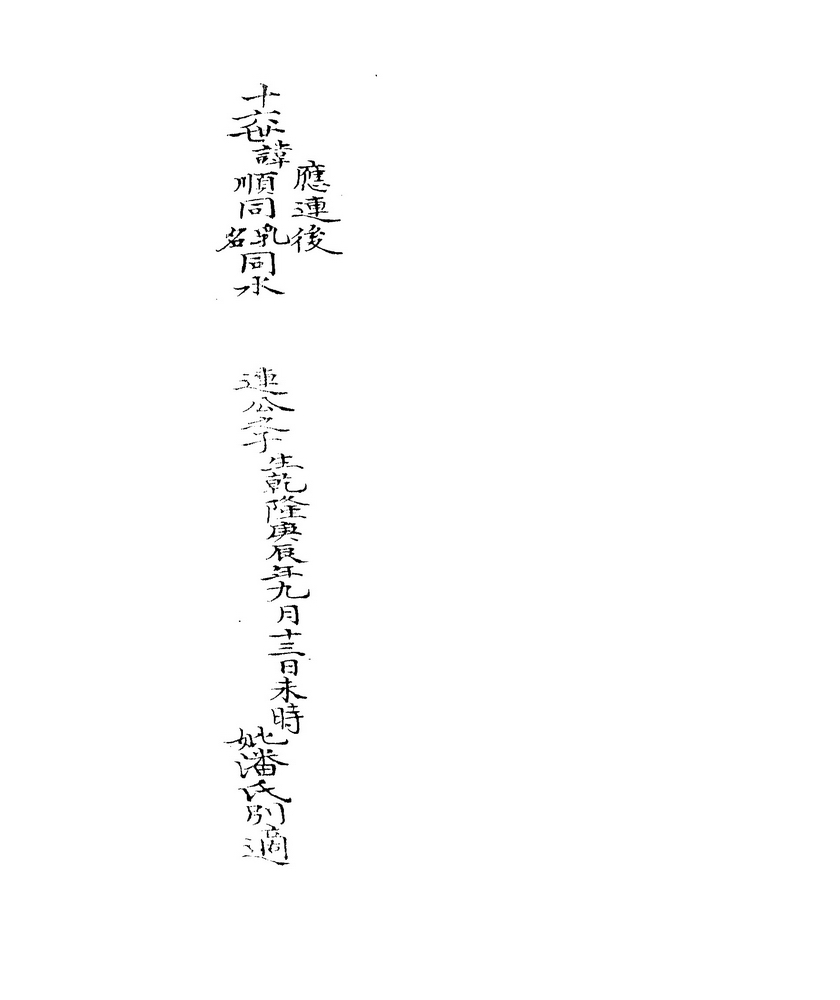 應連後
十六世諱順同乳名同水
連公之子生乾隆庚辰年九月十三日未時妣潘氏別適